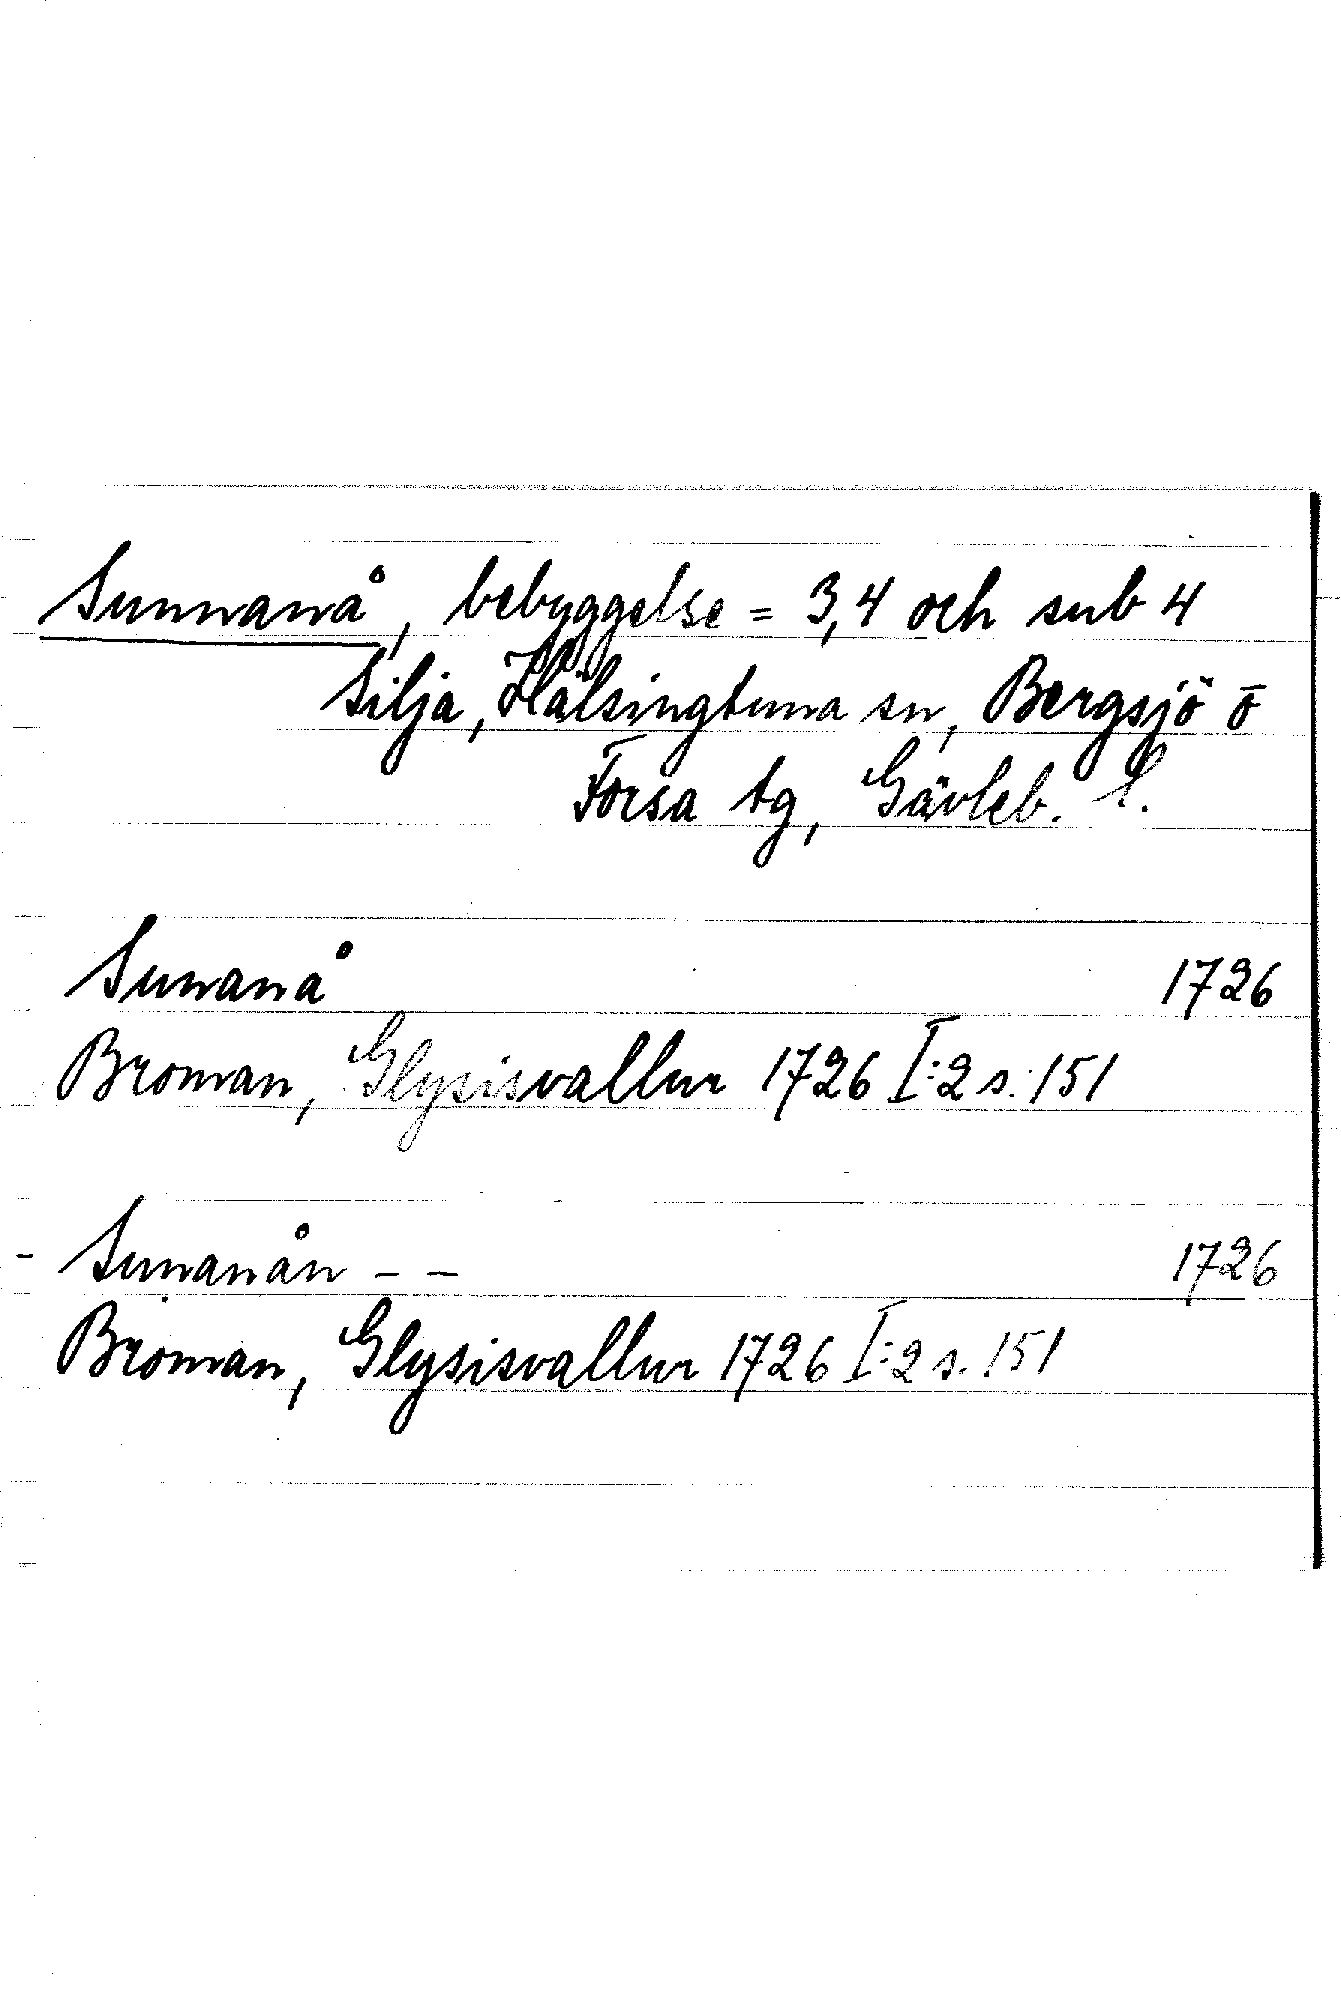 Sunnanå, bebyggelse = 3,4 och sub 4
Silja, Hälsingtuna sn, Bergsjö o
Forsa tg, Gävleb. l.
Sunanå 1726
Broman, Glysisvallur 1726 I:2 s. 151
- Sunanån - - 1726
Broman, Glysisvallur 1726 I:2 s. 151